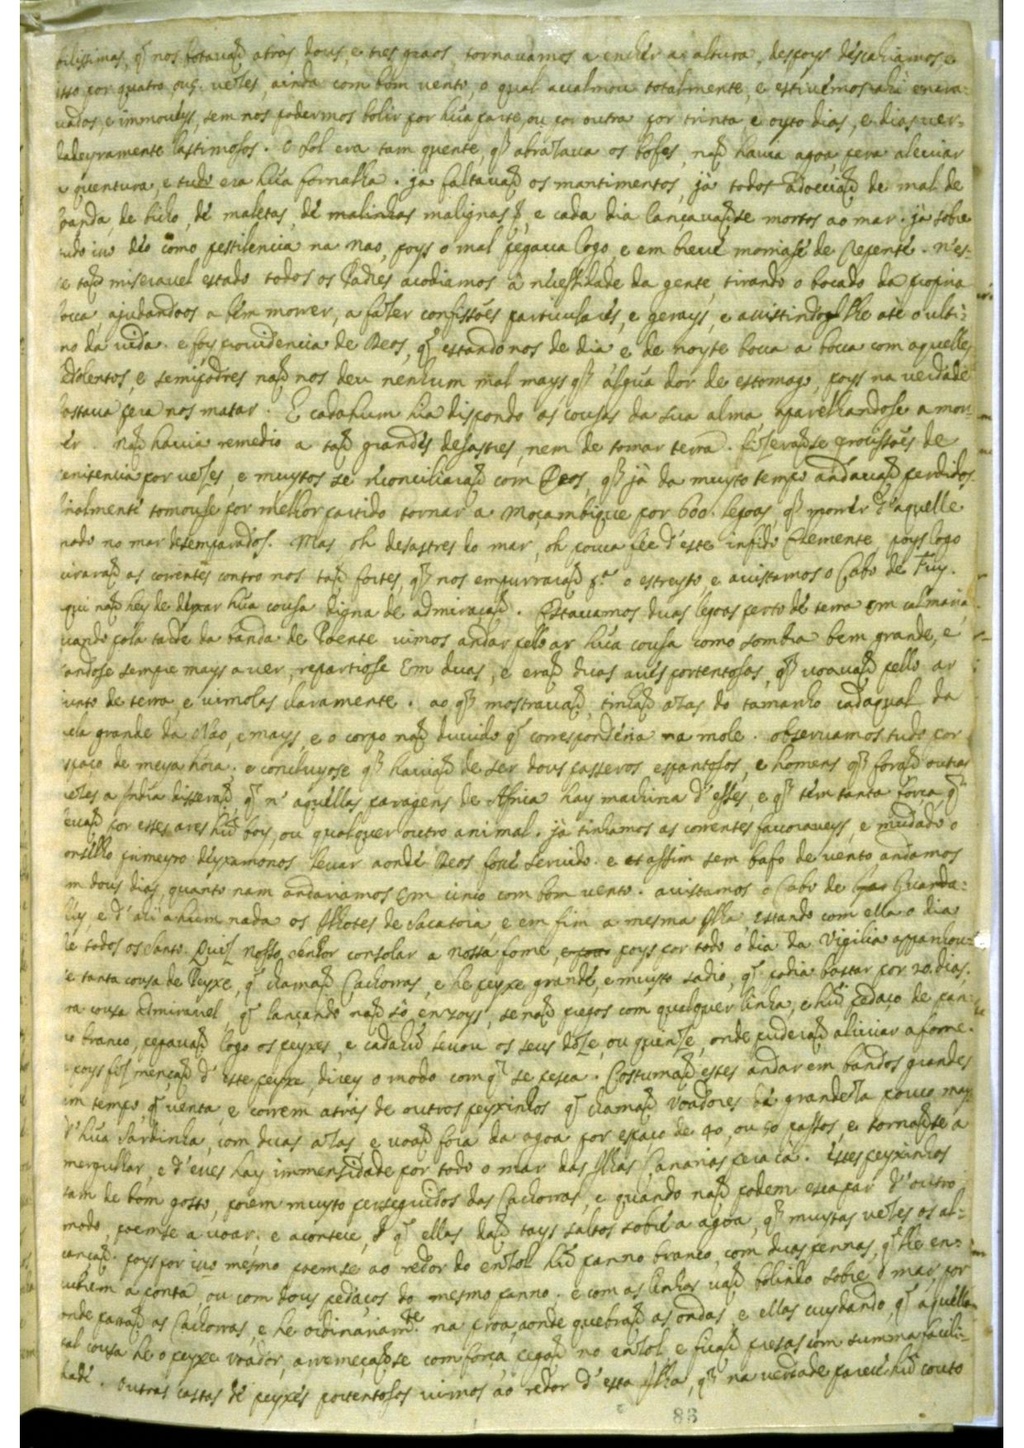 bilissimas, q̃ nos botavaõ atras dous, e tres graos, tornavamos a encher a altura, despoys descahiamos e
isto por quatro ou vezes, ainda com bom vento, o qual acalmou totalmente, e estivemos ahi encra-
vados, e immoveys, sem nos podermos bolir por hũa parte, ou por outra por trinta e oyto dias, e dias ver-
dadeyramente lastimosos. O sol era tam quente, q̃ abrazava os bofes, naõ havia agoa, pera aleviar
a quentura, e tudo era hũa fornalha. já faltavaõ os mantimentos, já todos adoeciaõ de mal de
de bicho, de maletas, de malinhas malignas, e cada dia lançavaõse mortos ao mar. já sobre
tudo isso deo como pestilencia na nao, poys o mal pegava logo, e em breve morriase de repente. N'es-
te taõ miseravel estado todos os Padres acodiamos â necessidade da gente, tirando o bocado da propria
bocca, ajudandoos a bem morrer, a fazer confissões particulares, e gerays, e assistindolhe até o ulti-
mo da vida. e foy providencia de Deos, q̃ estando nos de dia e de noyte bocca a bocca com aquelles
e semipodres naõ nos deu nenhum mal mays q̃ algũa dor de estomago, poys na verdade
bastava pera nos matar. E cadahum hia dispondo as cousas da sua alma, aparelhandose a mor-
rer. Naõ havia remedio a taõ grandes desastres, nem de tomar terra. Fizeraõse procissões de
penitencia por vezes, e muytos se reconciliaraõ com Deos, q̃ já da muyto tempo andavaõ perdidos.
Finalmente tomouse por melhor partido tornar a Moçambique por 600. legoas, q̃ morrer d'aquelle
modo no mar desemparados. Mas oh desastres do mar, oh pouca fee d'este infido elemente, poys logo
viraraõ as correntes contro nos taõ fortes, q̃ nos empurraraõ p.ª o estreyto, e avistamos o Cabo de Fuy.
Aqui naõ hey de deixar hũa cousa digna de admiraçaõ. Estavamos duas legoas perto de terra em calmaria
quando pola tarde da banda de Poente vimos andar pello ar hũa cousa como sombra bem grande, e
sempre mays a ver, repartiose em duas, e eraõ duas aves portentosas, q̃ voavaõ pello ar
junto de terra, e vimolas claramente. ao q̃ mostravaõ, tinhaõ azas do tamanho cadaqual da
vela grande da Nao, e mays, e o corpo naõ duvido q̃ correspondéria na mole. observamos tudo por
espaço de meya hora, e concluyose q̃ haviaõ de ser dous passeros espantosos, e homens q̃ foraõ outras
vezes a India disseraõ, q̃ n'aquellas paragens de Africa hay machina d'esses, e q̃ têm tanta força q̃
levaõ por estes ares hũ boy, ou qualquer outro animal. já tinhamos as correntes favoraveys, e mudado o
conselho primeyro deyxamonos levar aonde Deos fosse servido. e assim sem bafo de vento andamos
em dous dias, quanto nam andariamos em cinco com bom vento. avistamos o Cabo de Guarda-
fuy, e d'ali a hum nada os Ilhotes de Sacatoria e em fim a mesma Ilha estando com ella o dia
de todos os Santo. Quis Nosso Senhor consolar a nossa fome, poys por todo o dia da Vigilia appanhou-
se tanta cousa de Peyxe, q̃ chamaõ Cachorras, e he peyxe grande, e muyto sadio, q̃ podia bastar por 20. dias.
Era cousa admiravel q̃ lançando naõ so enzoys, senaõ pregos com qualquer linha, e hũ pedaço de pan-
no branco, pegavaõ logo os peyxes, e cadahũ levou os seus doze, ou quenze, onde puderaõ aliviar a fome.
E poys fiz mençaõ d'este peyxe, direy o modo com q̃ se pesca. Costumaõ estes andar em bandos grandes
em tempo, q̃ venta, e correm atrás de outros peyxinhos q̃ chamaõ voadores da grandeza pouco mays
d'hũa Sardinha, com duas azas e voaõ fora da agoa por espaço de 40, ou 50 passos, e tornaõse a
mergulhar, e d'eles hay immensidade por todo o mar das Ilhas Canarias pera cá. Esses peyxinhos
sam de bom gosto, porem muyto perseguidos das Cachorras, e quando naõ podem escapar d'outro
modo, poemse a voar; e acontece, q̃ ellas daõ tays saltos sobre a agoa, q̃ muytas vezes os al-
cançaõ. poys por isso mesmo poemse ao redor do enzol hũ panno branco, com duas pennas, q̃ lhe en-
cubrem a ponta ou com dous pedaços do mesmo panno. e com as linhas vaõ bolindo sobre o mar, por
onde passaõ as Cachorras, e he ordinariam.te na proa, aonde quebraõ as ondas, e ellas cuydando, q̃ aquella
tal cousa he o peyxe voador, arremeçaõse com força, pegaõ no enzol e ficaõ presas com summa facili-
dade. Outras castas de peyxes portentosos vimos ao redor d'esta Ilha, q̃ na verdade parece hũ couto
86